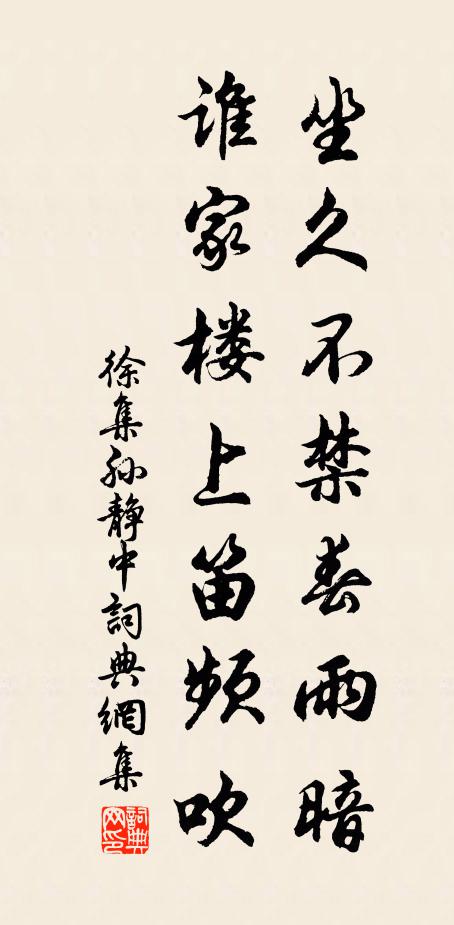 坐久不禁春雨暗
谁家楼上笛频吹
徐集孙静中詞典網集
詞典网印